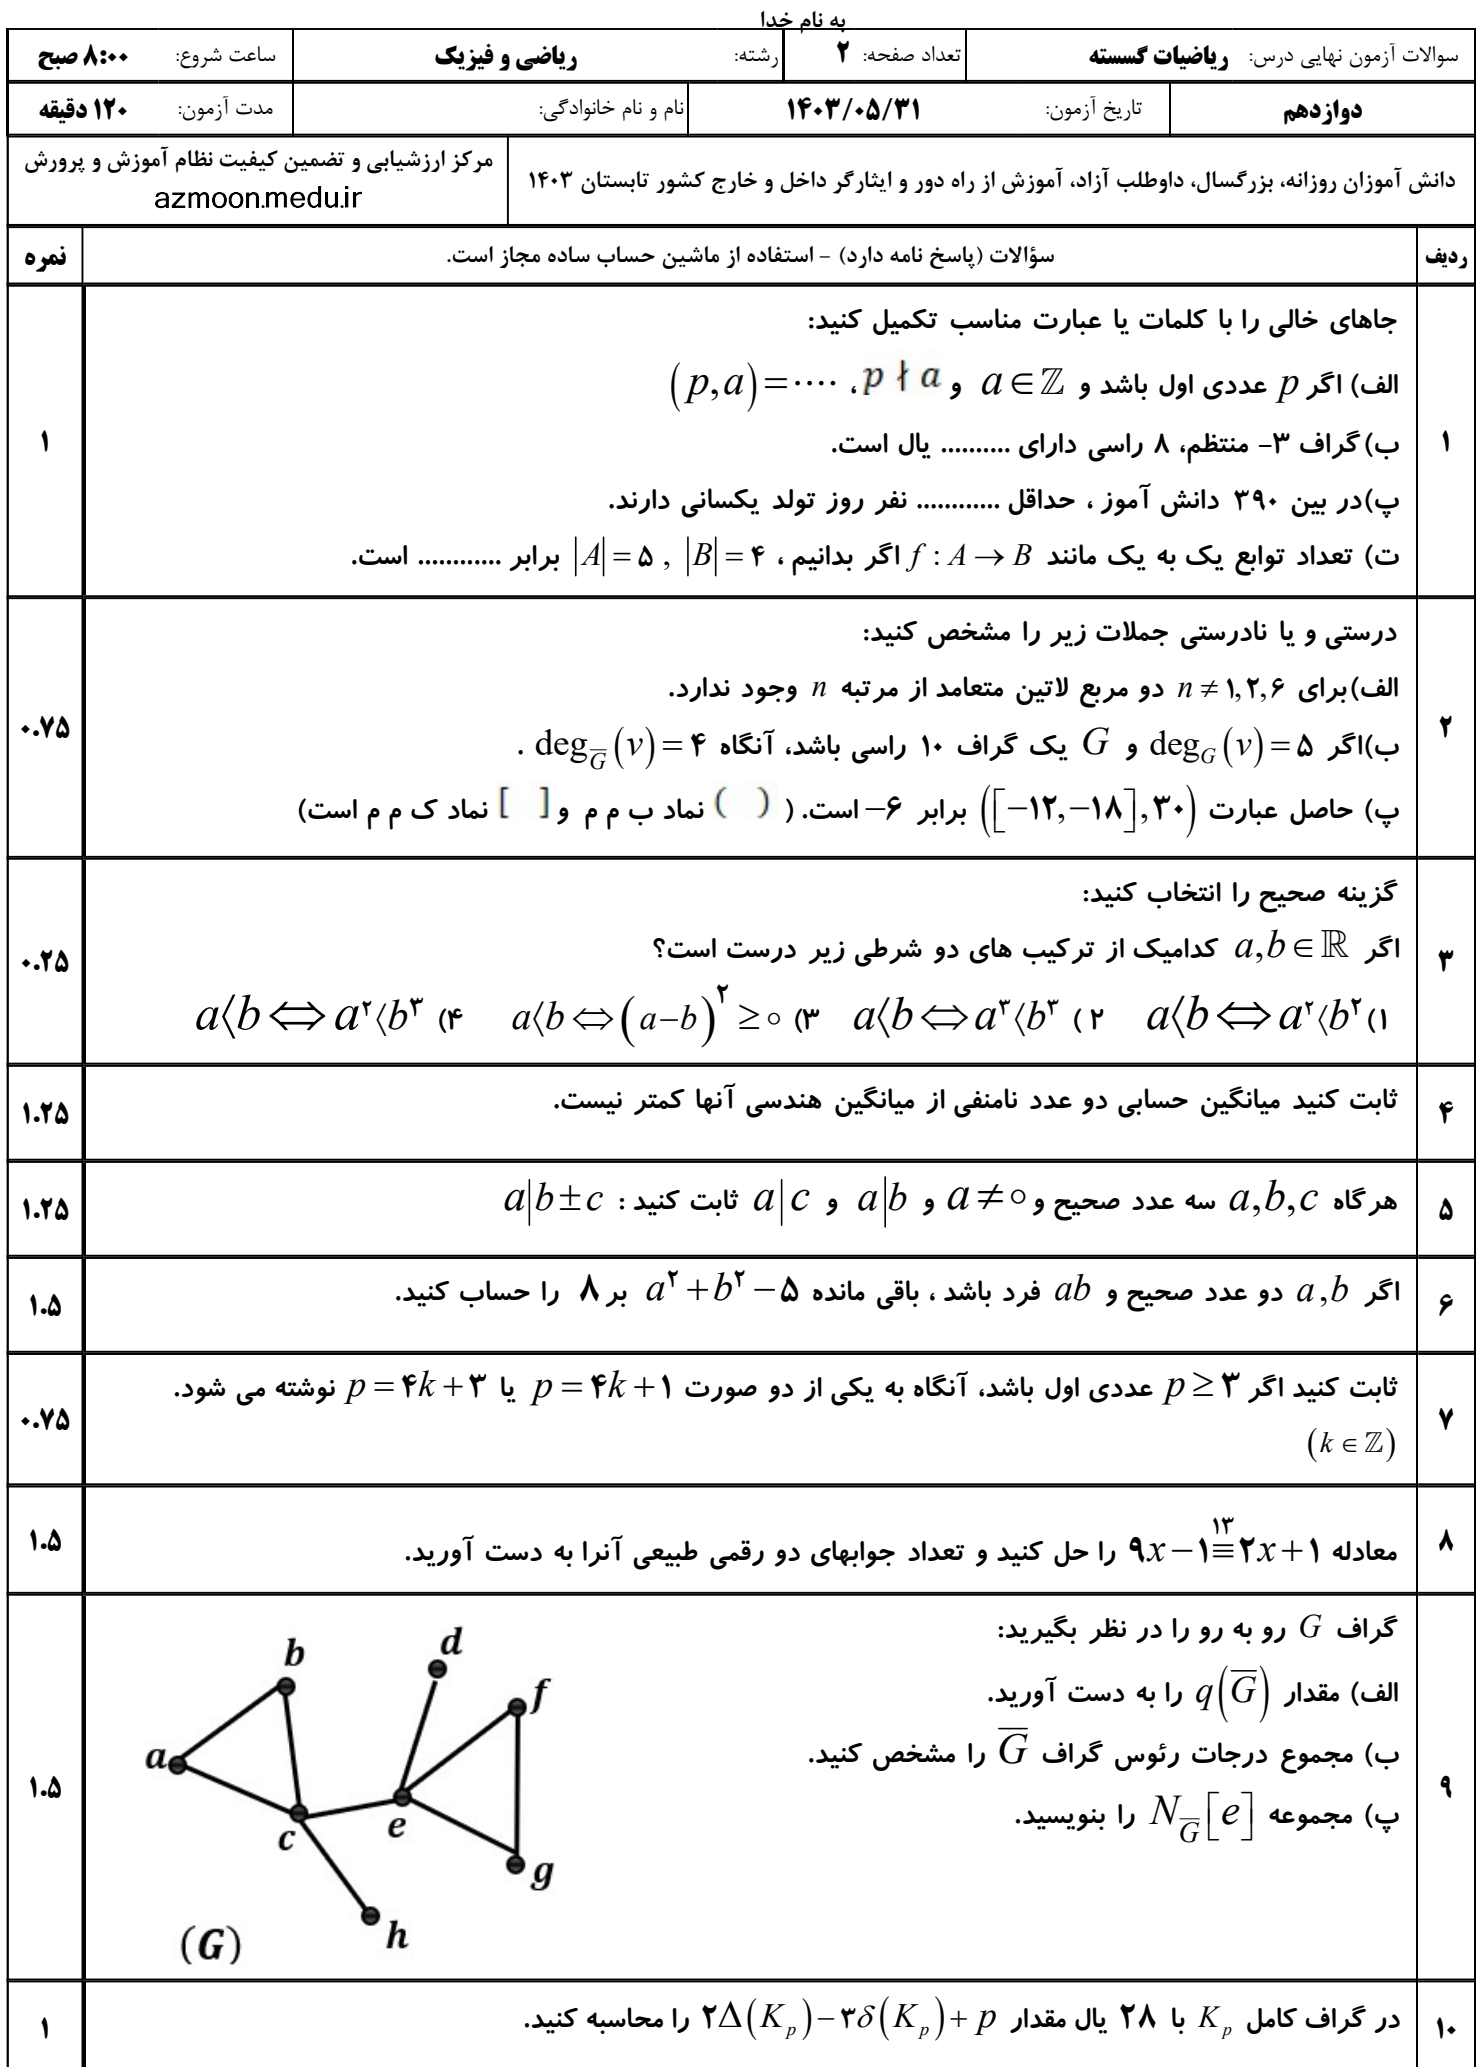 به نام خدا
سوالات آزمون نهایی درس: ریاضیات گسسته تعداد صفحه: ۲ رشته: ریاضی و فیزیک ساعت شروع: ۸:۰۰ صبح
دوازدهم تاریخ آزمون: ۱۴۰۳/۰۵/۳۱ نام و نام خانوادگی: مدت آزمون: ۱۲۰ دقیقه
دانش آموزان روزانه، بزرگسال، داوطلب آزاد، آموزش از راه دور و ایثارگر داخل و خارج کشور تابستان ۱۴۰۳ مرکز ارزشیابی و تضمین کیفیت نظام آموزش و پرورش
azmoon.medu.ir
ردیف سؤالات (پاسخ نامه دارد) - استفاده از ماشین حساب ساده مجاز است. نمره
جاهای خالی را با کلمات یا عبارت مناسب تکمیل کنید:
الف) اگر p عددی اول باشد و a∈ℤ و p∤a، (p,a)=....
۱ ب) گراف ۳- منتظم، ۸ راسی دارای .......... یال است. ۱
پ)در بین ۳۹۰ دانش آموز ، حداقل ............ نفر روز تولد یکسانی دارند.
ت) تعداد توابع یک به یک مانند f : A → B اگر بدانیم ، |A| = ۵ , |B| = ۴ برابر ............ است.
درستی و یا نادرستی جملات زیر را مشخص کنید:
الف)برای n ≠ ۱,۲,۶ دو مربع لاتین متعامد از مرتبه n وجود ندارد.
۲ ب)اگر deg_G(v) = ۵ و G یک گراف ۱۰ راسی باشد، آنگاه deg_G̅(v) = ۴ . ۰.۷۵
پ) حاصل عبارت ([−۱۲,−۱۸],۳۰) برابر ۶− است. ( ( ) نماد ب م م و [ ] نماد ک م م است)
گزینه صحیح را انتخاب کنید:
۳ اگر a,b∈ℝ کدامیک از ترکیب های دو شرطی زیر درست است؟ ۰.۲۵
۱) a⟨b ⇔ a²⟨b² ۲) a⟨b ⇔ a³⟨b³ ۳) a⟨b ⇔ (a−b)² ≥ ۰ ۴) a⟨b ⇔ a²⟨b³
۴ ثابت کنید میانگین حسابی دو عدد نامنفی از میانگین هندسی آنها کمتر نیست. ۱.۲۵
۵ هرگاه a,b,c سه عدد صحیح و a≠۰ و a|b و a|c ثابت کنید : a|b±c ۱.۲۵
۶ اگر a,b دو عدد صحیح و ab فرد باشد ، باقی مانده a²+b²−۵ بر ۸ را حساب کنید. ۱.۵
ثابت کنید اگر p ≥ ۳ عددی اول باشد، آنگاه به یکی از دو صورت p = ۴k+۱ یا p = ۴k+۳ نوشته می شود.
۷ (k∈ℤ) ۰.۷۵
۸ معادله ۹x−۱ ≡^{۱۳} ۲x+۱ را حل کنید و تعداد جوابهای دو رقمی طبیعی آنرا به دست آورید. ۱.۵
گراف G رو به رو را در نظر بگیرید:
الف) مقدار q(G̅) را به دست آورید.
ب) مجموع درجات رئوس گراف G̅ را مشخص کنید.
۹ پ) مجموعه N_G̅[e] را بنویسید. ۱.۵
b d
f
a
c e
g
(G) h
۱۰ در گراف کامل K_p با ۲۸ یال مقدار ۲Δ(K_p)−۳δ(K_p)+p را محاسبه کنید. ۱